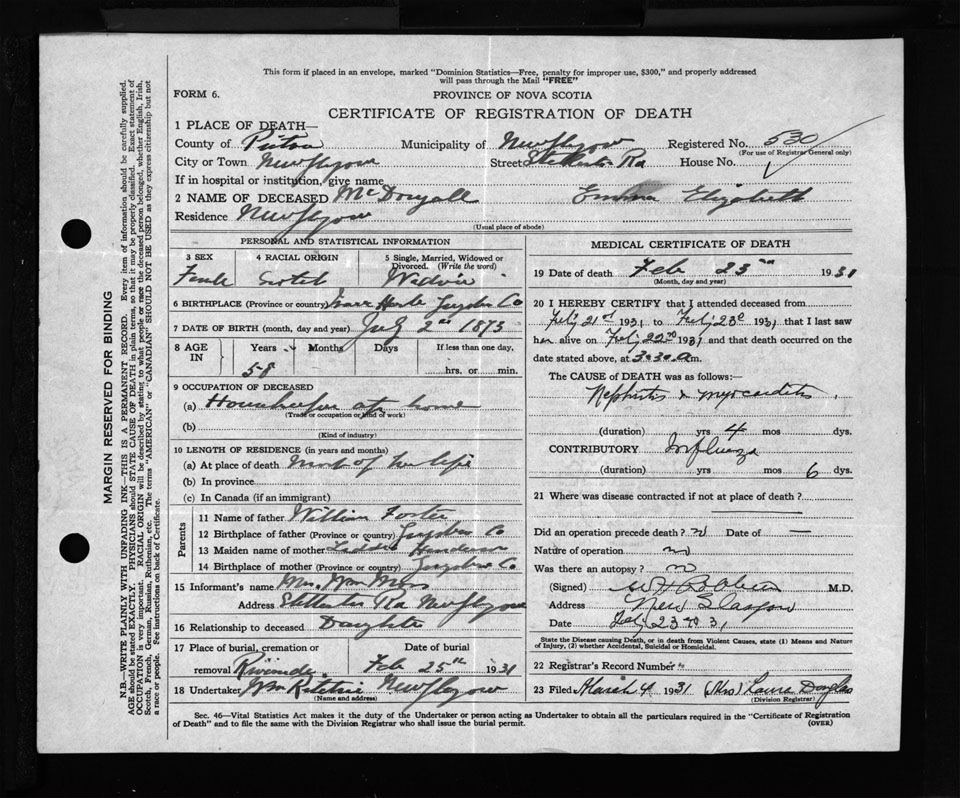 This form if placed in an envelope, marked "Dominion Statistics—Free, penalty for improper use, $300," and properly addressed
will pass through the Mail "FREE"
FORM 6.
PROVINCE OF NOVA SCOTIA
CERTIFICATE OF REGISTRATION OF DEATH
1 PLACE OF DEATH—
County of Pictou Municipality of New Glasgow Registered No. 530
(For use of Registrar General only)
City or Town New Glasgow Street Stellarton Rd House No.
If in hospital or institution, give name
2 NAME OF DECEASED McDougall Emma Elizabeth
Residence New Glasgow
(Usual place of abode)
PERSONAL AND STATISTICAL INFORMATION
3 SEX
Female
4 RACIAL ORIGIN
Scotch
5 Single, Married, Widowed or Divorced. (Write the word)
Widow
6 BIRTHPLACE (Province or country) Isaacs Harbor Guysboro Co
7 DATE OF BIRTH (month, day and year) July 2nd 1873
8 AGE IN Years Months Days If less than one day,
58 hrs. or min.
9 OCCUPATION OF DECEASED
(a) Housekeeper at home
(Trade or occupation or kind of work)
(b)
(Kind of industry)
10 LENGTH OF RESIDENCE (in years and months)
(a) At place of death most of her life
(b) In province
(c) In Canada (if an immigrant)
Parents
11 Name of father William Foster
12 Birthplace of father (Province or country) Guysboro Co
13 Maiden name of mother Henderson
14 Birthplace of mother (Province or country) Guysboro Co
15 Informant's name Mrs. Wm
Address Stellarton Rd New Glasgow
16 Relationship to deceased Daughter
17 Place of burial, cremation or removal Riverside
Date of burial
Feb 25th 1931
18 Undertaker Wm Ritchie New Glasgow
(Name and address)
MEDICAL CERTIFICATE OF DEATH
19 Date of death Feb 23rd 1931
(Month, day and year)
20 I HEREBY CERTIFY that I attended deceased from
Feby 21st 1931 to Feby 23d 1931 that I last saw
her alive on Feby 22nd 1931 and that death occurred on the
date stated above, at 3.30 a m.
The CAUSE OF DEATH was as follows:—
Nephritis & myocarditis
(duration) yrs 4 mos dys.
CONTRIBUTORY Influenza
(duration) yrs mos 6 dys.
21 Where was disease contracted if not at place of death?
Did an operation precede death? no Date of —
Nature of operation no
Was there an autopsy? no
(Signed) M.D.
Address New Glasgow
Date Feby 23rd 31
State the Disease causing Death, or in death from Violent Causes, state (1) Means and Nature
of Injury, (2) whether Accidental, Suicidal or Homicidal.
22 Registrar's Record Number
23 Filed March 4 1931 (Mrs) Laura Douglas
(Division Registrar)
Sec. 46—Vital Statistics Act makes it the duty of the Undertaker or person acting as Undertaker to obtain all the particulars required in the "Certificate of Registration
of Death" and to file the same with the Division Registrar who shall issue the burial permit.
(OVER)
MARGIN RESERVED FOR BINDING
N.B.—WRITE PLAINLY WITH UNFADING INK—THIS IS A PERMANENT RECORD. Every item of information should be carefully supplied.
AGE should be stated EXACTLY. PHYSICIANS should STATE CAUSE OF DEATH in plain terms, so that it may be properly classified. Exact statement of
OCCUPATION is very important. RACIAL ORIGIN will be described by stating to what people or race the deceased person belonged, whether English, Irish,
Scotch, French, German, Russian, Ruthenian, etc. The terms "AMERICAN" or "CANADIAN" SHOULD NOT BE USED as they express citizenship but not
a race or people. See instructions on back of Certificate.